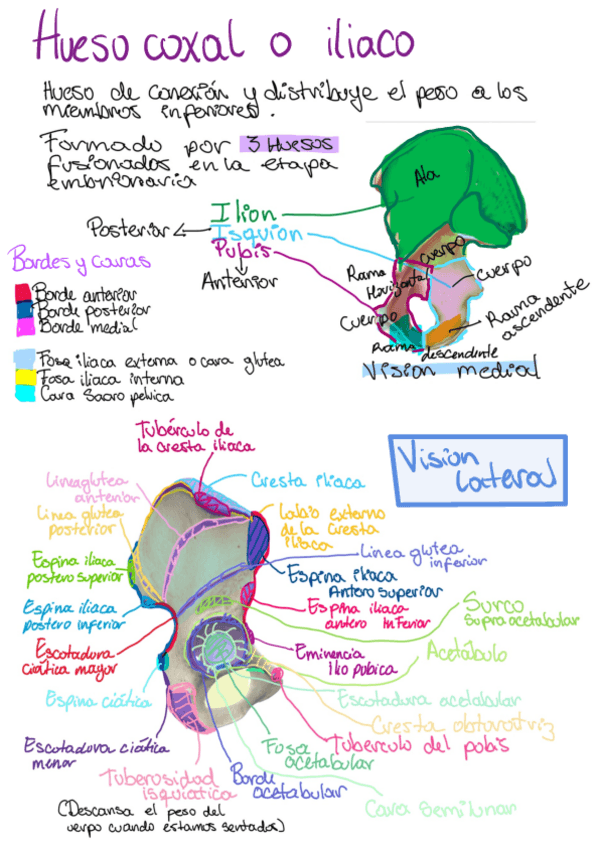 Hueso coxal o iliaco
Hueso de conexión y distribuye el peso a los
miembros inferiores.
Formado por 3 Huesos
fusionados en la etapa
embrionaria
Ilion
Posterior
Isquion
Pubis
Anterior
Ala
Cuerpo
Rama
Horizontal
Cuerpo
Cuerpo
Rama
ascendente
Rama descendente
Vision medial
Bordes y caras
Borde anterior
Borde posterior
Borde medial
Fosa iliaca externa o cara glutea
Fosa iliaca interna
Cara Sacro pelvica
Vision
lateral
Tubérculo de
la cresta iliaca
Linea glutea
anterior
Cresta iliaca
Linea glutea
posterior
Labio externo
de la cresta
iliaca
Linea glutea
inferior
Espina iliaca
postero superior
Espina iliaca
Antero superior
Espina iliaca
postero inferior
Espina iliaca
antero inferior
Surco
supra acetabular
Escotadura
ciática mayor
Eminencia
ilio pubica
Acetábulo
Espina ciática
Escotadura acetabular
Cresta obturatriz
Escotadura ciática
menor
Fosa
acetabular
Tuberculo del pubis
Tuberosidad
isquiatica
Borde
acetabular
Cara Semilunar
(Descansa el peso del
cuerpo cuando estamos sentados)